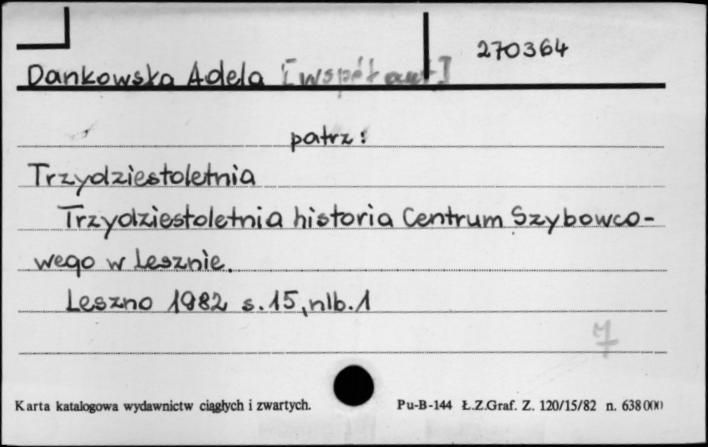 270364
Dankowska Adela [współaut]
patrz:
Trzydziestoletnia
Trzydziestoletnia historia Centrum Szybowco-
wego w Lesznie.
Leszno 1982 s. 15, nlb. 1
7
Karta katalogowa wydawnictw ciągłych i zwartych. Pu-B-144 Ł.Z.Graf. Z. 120/15/82 n. 638000